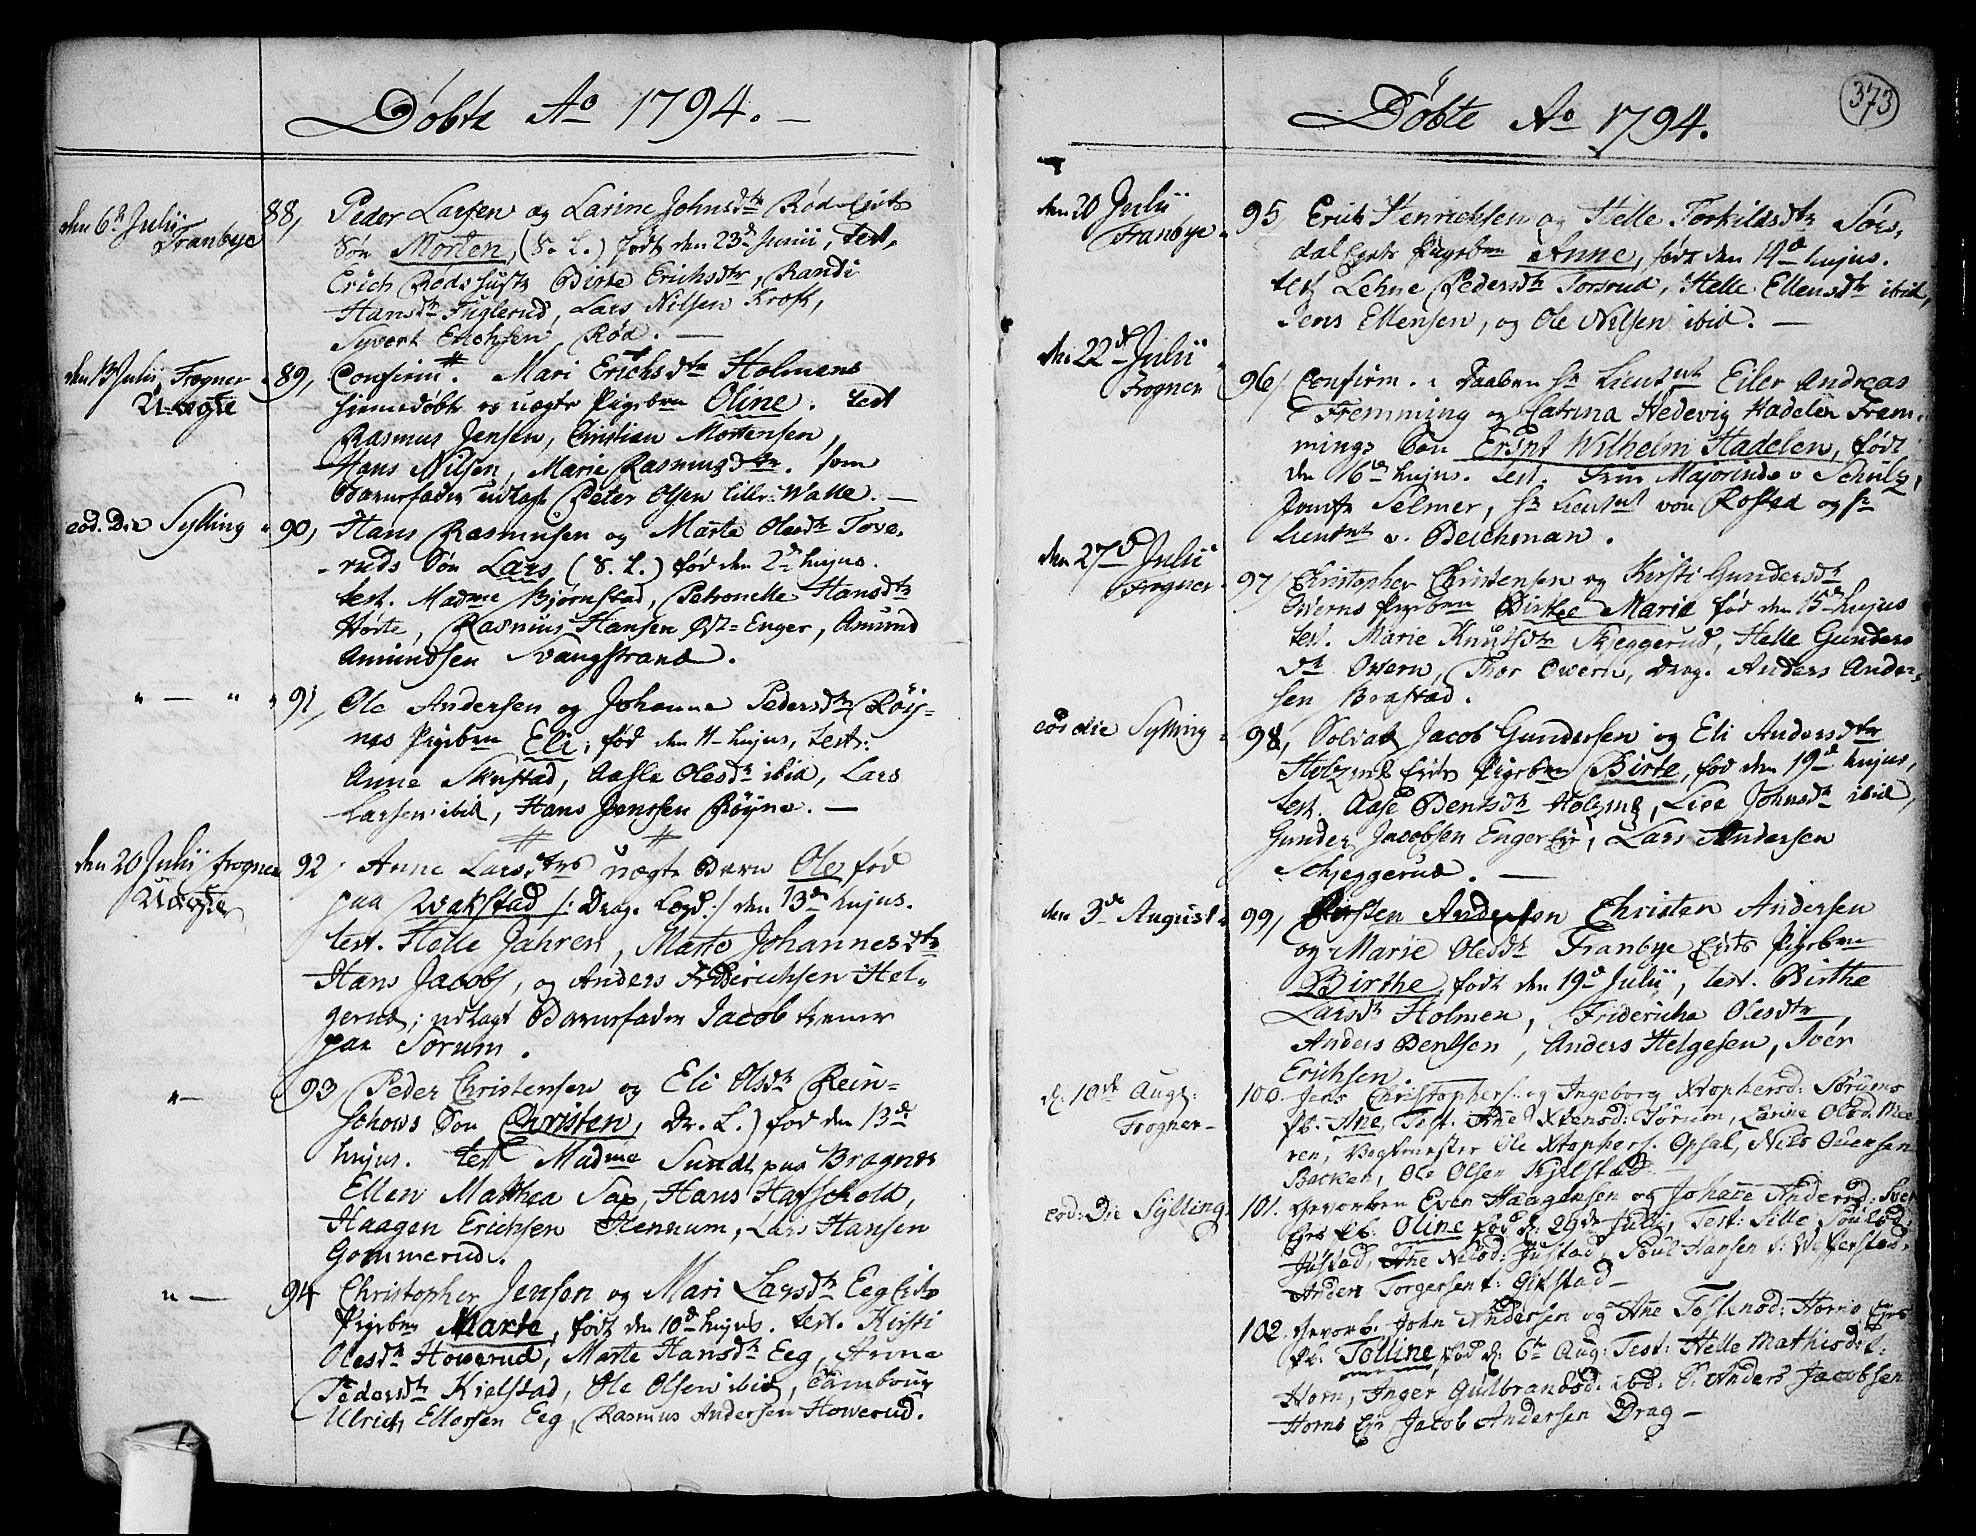 Döbte Ao 1794.
den 6te Julii Tranbye
88, Peder Larsen og Larine Johnsdtr Röds Eiets
Sön Morten, (S. L.) födt den 23de Junii, test,
Erich Röds hustr Birte Erichsdtr, Randi
Hansdtr Fuglerud, Lars Nilsen Kroft,
Syvert Erichsen Röd.
den 13 Julii Frogner
Uægte
89, Confirm. Mari Erichsdtr Holmens
hjemedöbte og uægte Pigebrn Oline. test
Rasmus Jensen, Christian Mortensen,
Hans Nilsen, Marie Rasmusdtr. som
Barnefader udlagt Peter Olsen Eiler-Walle.
eod. Die Sylling
90, Hans Rasmusen og Marte Olesdtr Tove-
ruds Sön Lars (S. L.) föd den 2de hujus.
test. Madme Bjørnstad, Petronelle Hansdtr
Hörte, Rasmus Hansen Øst-Enger, Amund
Amundsen Svangstrand.
91, Ole Andersen og Johanne Pedersdtr Röis-
nes Pigebrn Eli, föd den 11 hujus, test:
Anne Skustad, Aasle Olesdtr ibid, Lars
Larsen ibid, Hans Jenssen Röyne.
den 20 Julii Frogner
Uægte
92, Anne Larsdtrs uægte Barn Ole föd
paa Qvakstad /: Drag. Logd :/ den 13de hujus.
test. Helle Jahren, Marte Johannesdtr
Hans Jacobs, og Anders Friderichsen Hel-
gerud; udlagt Barnefader Jacob tener
paa Sorum.
93 Peder Christensen og Eli Olsdtr Rein-
schows Sön Christen, Dr. L.) föd den 13de
hujus. test Madme Sundt paa Bragnes
Ellen Mathea Sax, Hans Hafscheld,
Haagen Erichsen Hennum, Lars Hansen
Gommerud.
94 Christopher Jensen og Mari Larsdtr Eeg Eiets
Pigebrn Marte, födt den 10de hujus. test. Kirsti
Olesdtr Howerud, Marte Hansdtr Eeg, Anne
Pedersdtr Kielstad, Ole Olsen ibid, Tambour
Ulrich Ellersen Eeg, Rasmus Andersen Howerud.
373
Döbte Ao 1794.
den 20 Julii
Tranbye
95, Erich Henrichsen og Helle Torkildsdtr Sörs-
dal Eyets Pigebrn Anne, födt den 14de hujus.
test Lehne Pedersdtr Torsrud, Helle Ellensdtr ibid,
Jens Ellensen, og Ole Nilsen ibid.
den 22de Julii
Frogner
96, Confirm. i Daaben Hr Lieutnt Eiler Andreas
Fremming og Catrina Hedevig Hadelen Frem-
mings Sön Ernst Wilhelm Hadelen, födt
den 16de hujus. test. Frue Majorinde v Schultz,
Jomfr Selmer, Hr Lieutnt von Rosted og Hr
Lieutnt v. Deichman.
den 27de Julii
Frogner
97, Christopher Christensen og Kirsti Gundersdtr
Overns Pigebrn Birthe Marie föd den 15de hujus
test. Marie Knutsdtr Skjeggerud, Helle Gunders
dtr Overn, Thor Overn, Drag. Anders Ander-
sen Brastad.
eod die Sylling
98, Soldat Jacob Gundersen og Eli Andersdtr
Holtzmk Eyets Pigebrn Birte, föd den 19de hujus,
test. Aase Bentsdtr Holzmk, Live Johnsdtr ibid,
Gunder Jacobsen Enger Eye, Lars Andersen
Schjeggerud.
den 3de August
99, Kirsten Andersen Christen Andersen
og Marie Olesdtr Tranbye Eyets Pigebrn
Birthe, födt den 19de Julii, test. Birthe
Larsdtr Holmen, Fridericha Olesdtr,
Anders Bentsen, Anders Helgesen, Iver
Erichsen.
d. 10de Aug:
Frogner
100. Jens Christophers. og Ingeborg Xtophersd: Sörums
Pb. Ane, Test. Ane Xtensd: Sörum, Karine Olsd: Mee
ren, Vogtmester Ole Xtophers. Opsal, Nils Ouersen
Backen, Ole Olsen Kjelstad
eod: Die Sylling
101. Gevorben Even Haagensen og Johane Andersd: Svere
Eyes Pb: Oline föd d: 29de Julii, Test: Sille Poulsd:
Justad, Ane Nilsd: Justad, Poul Hansen t: Wefferstad,
Anders Torgersen t: Gitstad
102. Gevorb: John Andersen og Ane Tostensd: Horns Eyes
Pb. Tolline, föd d: 6te Aug: Test: Helle Mathisd: t.
Horn, Inger Gulbrandsd: ibd: S: Anders Jacobsen
Horns Eye Jacob Andersen Drag